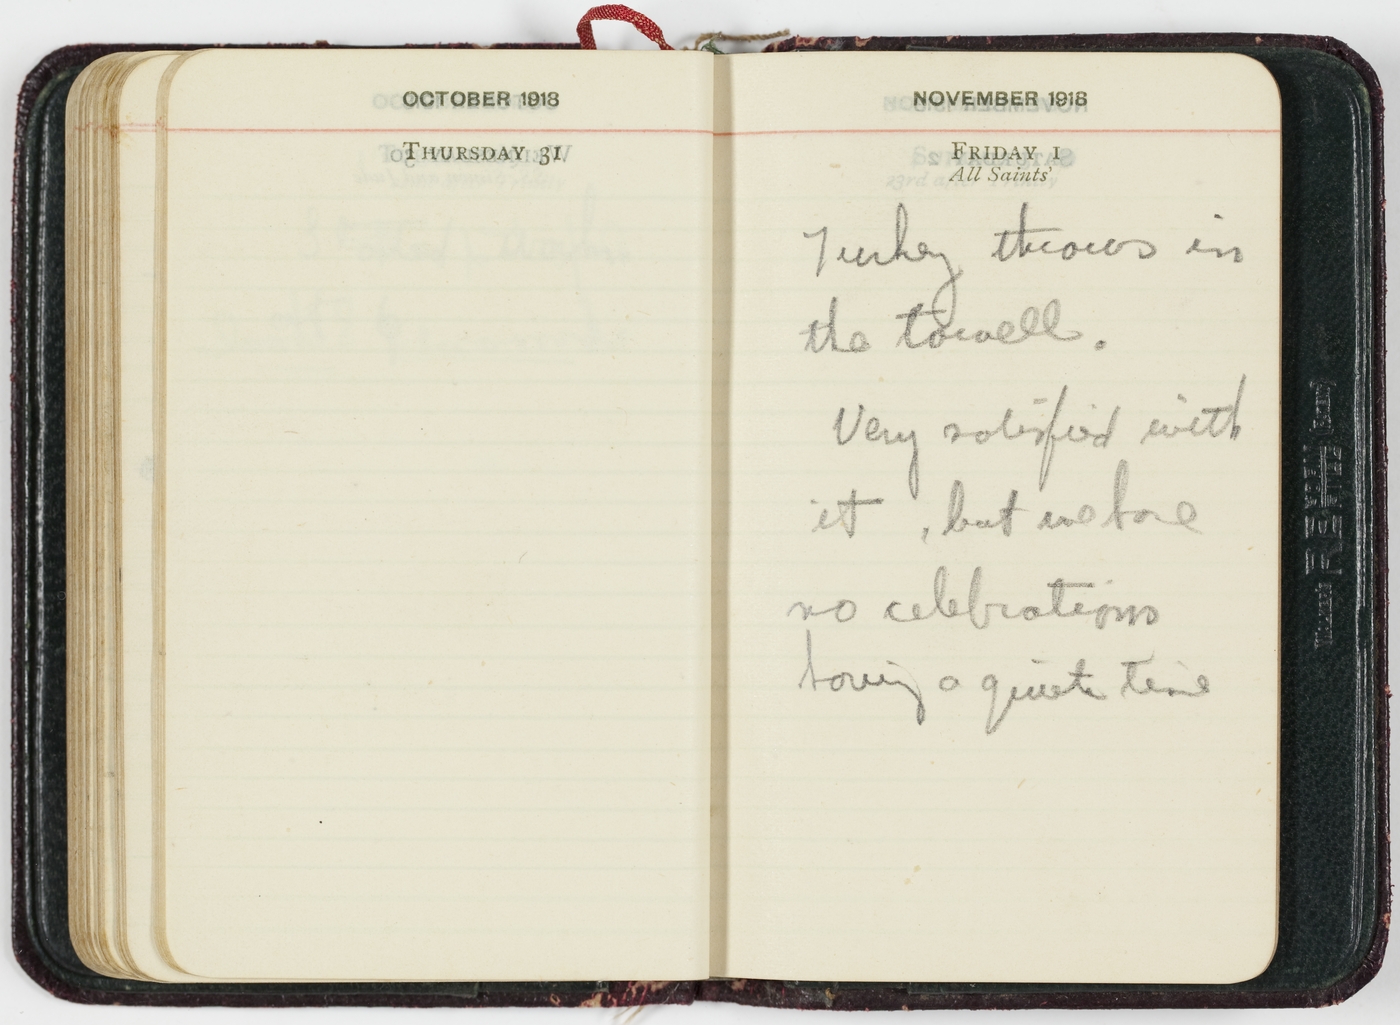 OCTOBER 1918
THURSDAY 31
NOVEMBER 1918
FRIDAY 1
All Saints'
Turkey throws in
the towell.
Very satisfied with
it, but we have
no celebrations
having a quiet time